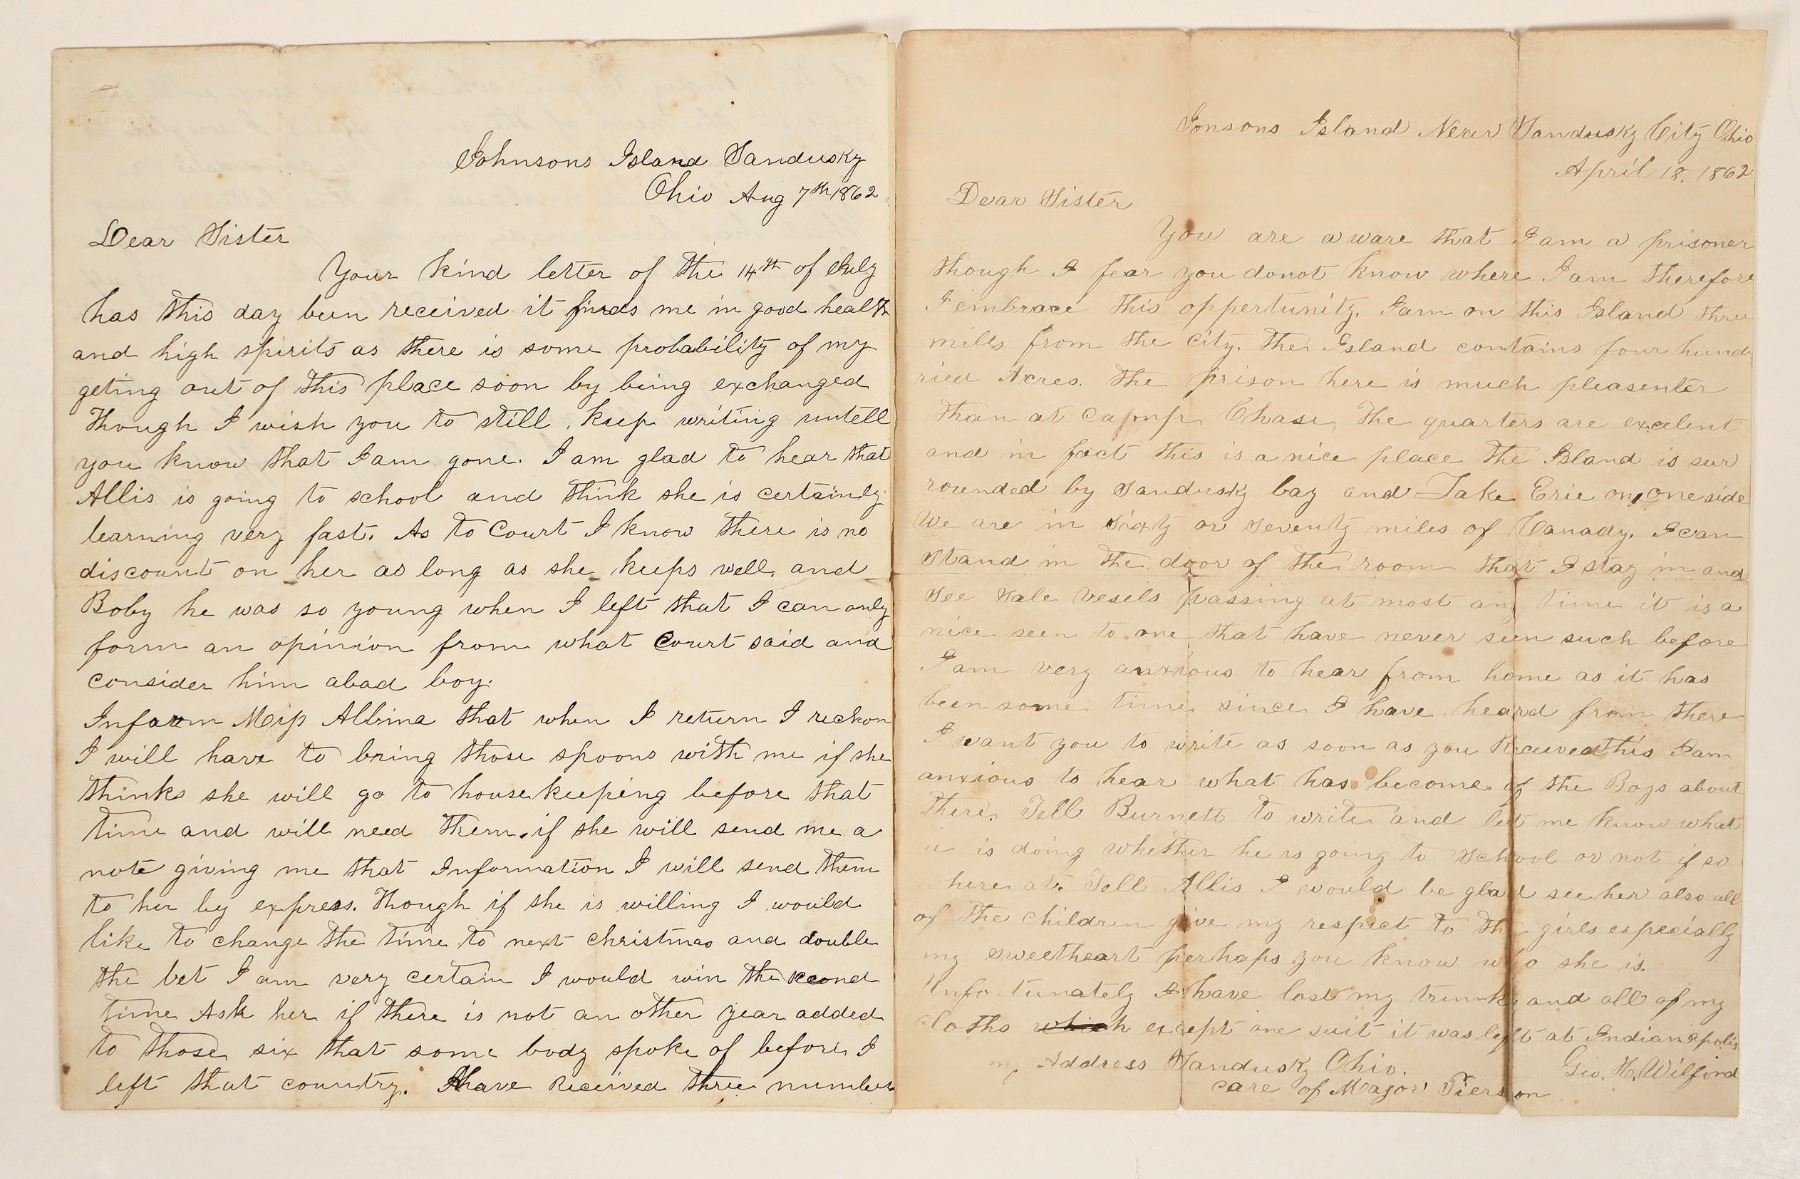 Johnsons Island Sandusky
Ohio Aug 7th 1862
Dear Sister
Your kind letter of the 14th of July
has this day been received it finds me in good health
and high spirits as there is some probability of my
geting out of this place soon by being exchanged
Though I wish you to still keep writing untell
you know that I am gone. I am glad to hear that
Allis is going to school and think she is certainly
learning very fast. As to Court I know there is no
discount on her as long as she keeps well, and
Boby he was so young when I left that I can only
form an opinion from what Court said and
consider him abad boy.
Inform Miss Albina that when I return I reckon
I will have to bring those spoons with me if she
thinks she will go to housekeeping before that
time and will need them. if she will send me a
note giving me that Information I will send them
to her by express. Though if she is willing I would
like to change the time to next christmas and double
the bet I am very certain I would win the second
time Ask her if there is not an other year added
to those six that some body spoke of before I
left that country. I have received three number
Jonsons Island Near Sandusky City Ohio
April 18. 1862
Dear Sister
You are aware that I am a prisoner
though I fear you donot know where I am therefore
I embrace this oppertunity. I am on this Island three
mills from the city. The Island contains four hund
ried Acres. The prison here is much pleasenter
than at Camp Chase, The quarters are excelent
and in fact this is a nice place The Island is sur
rounded by Sandusky bay and Lake Erie on one side
We are in sixty or seventy miles of Canady. I can
stand in the door of the room that I stay in and
see sale vesels passing at most any time it is a
nice seen to one that have never seen such before
I am very anxious to hear from home as it has
been some time since I have heard from there
I want you to write as soon as you Receive this I am
anxious to hear what has become of the Boys about
there. Tell Burnett to write and let me know what
is doing whether he is going to school or not if so
where at. Tell Allis I would be glad see her also all
of the children give my respect to the girls especially
my sweetheart perhaps you know who she is.
Unfortunately I have lost my trunk and all of my
cloths which except one suit it was left at Indianapolis
my Address Sandusky Ohio.
Geo. H. Wilford
care of Major Pierson